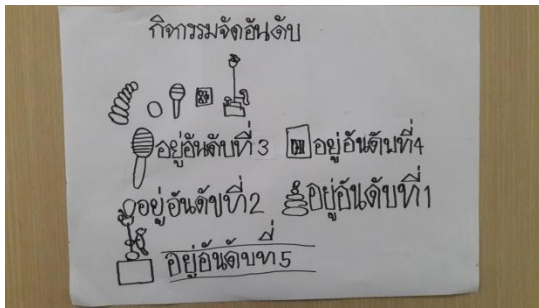 กิจกรรมจัดอันดับ
อยู่อันดับที่ 3 อยู่อันดับที่ 4
อยู่อันดับที่ 2 อยู่อันดับที่ 1
อยู่อันดับที่ 5